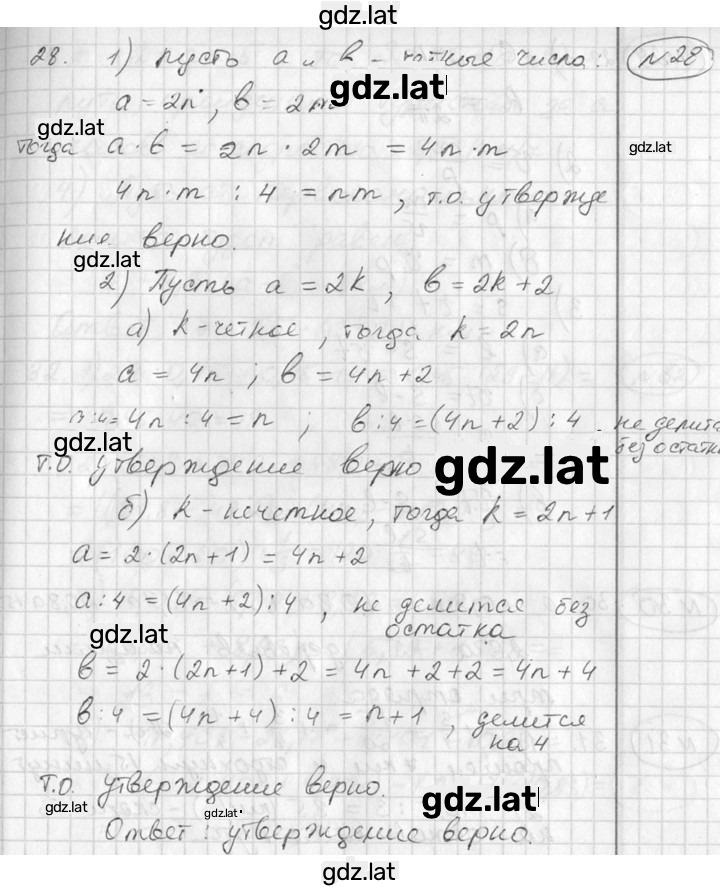 gdz.lat
28. 1) пусть a и b - четные числа: №28
a = 2n, b = 2m gdz.lat
gdz.lat
тогда a·b = 2n · 2m = 4n·m gdz.lat
4n·m : 4 = nm, т.о. утвержде
ние верно.
gdz.lat
2) Пусть a = 2k, b = 2k+2
а) k-четное, тогда k = 2n
a = 4n; b = 4n+2
a:4=4n:4=n; b:4=(4n+2):4. не делится
без остатка
gdz.lat
т.о. утверждение верно gdz.lat
б) k-нечетное, тогда k = 2n+1
a = 2·(2n+1) = 4n+2
a:4 = (4n+2):4, не делится без
gdz.lat остатка
b = 2·(2n+1)+2 = 4n+2+2 = 4n+4
b:4 = (4n+4):4 = n+1, делится
на 4
т.о. утверждение верно.
gdz.lat gdz.lat gdz.lat
Ответ: утверждение верно.
gdz.lat